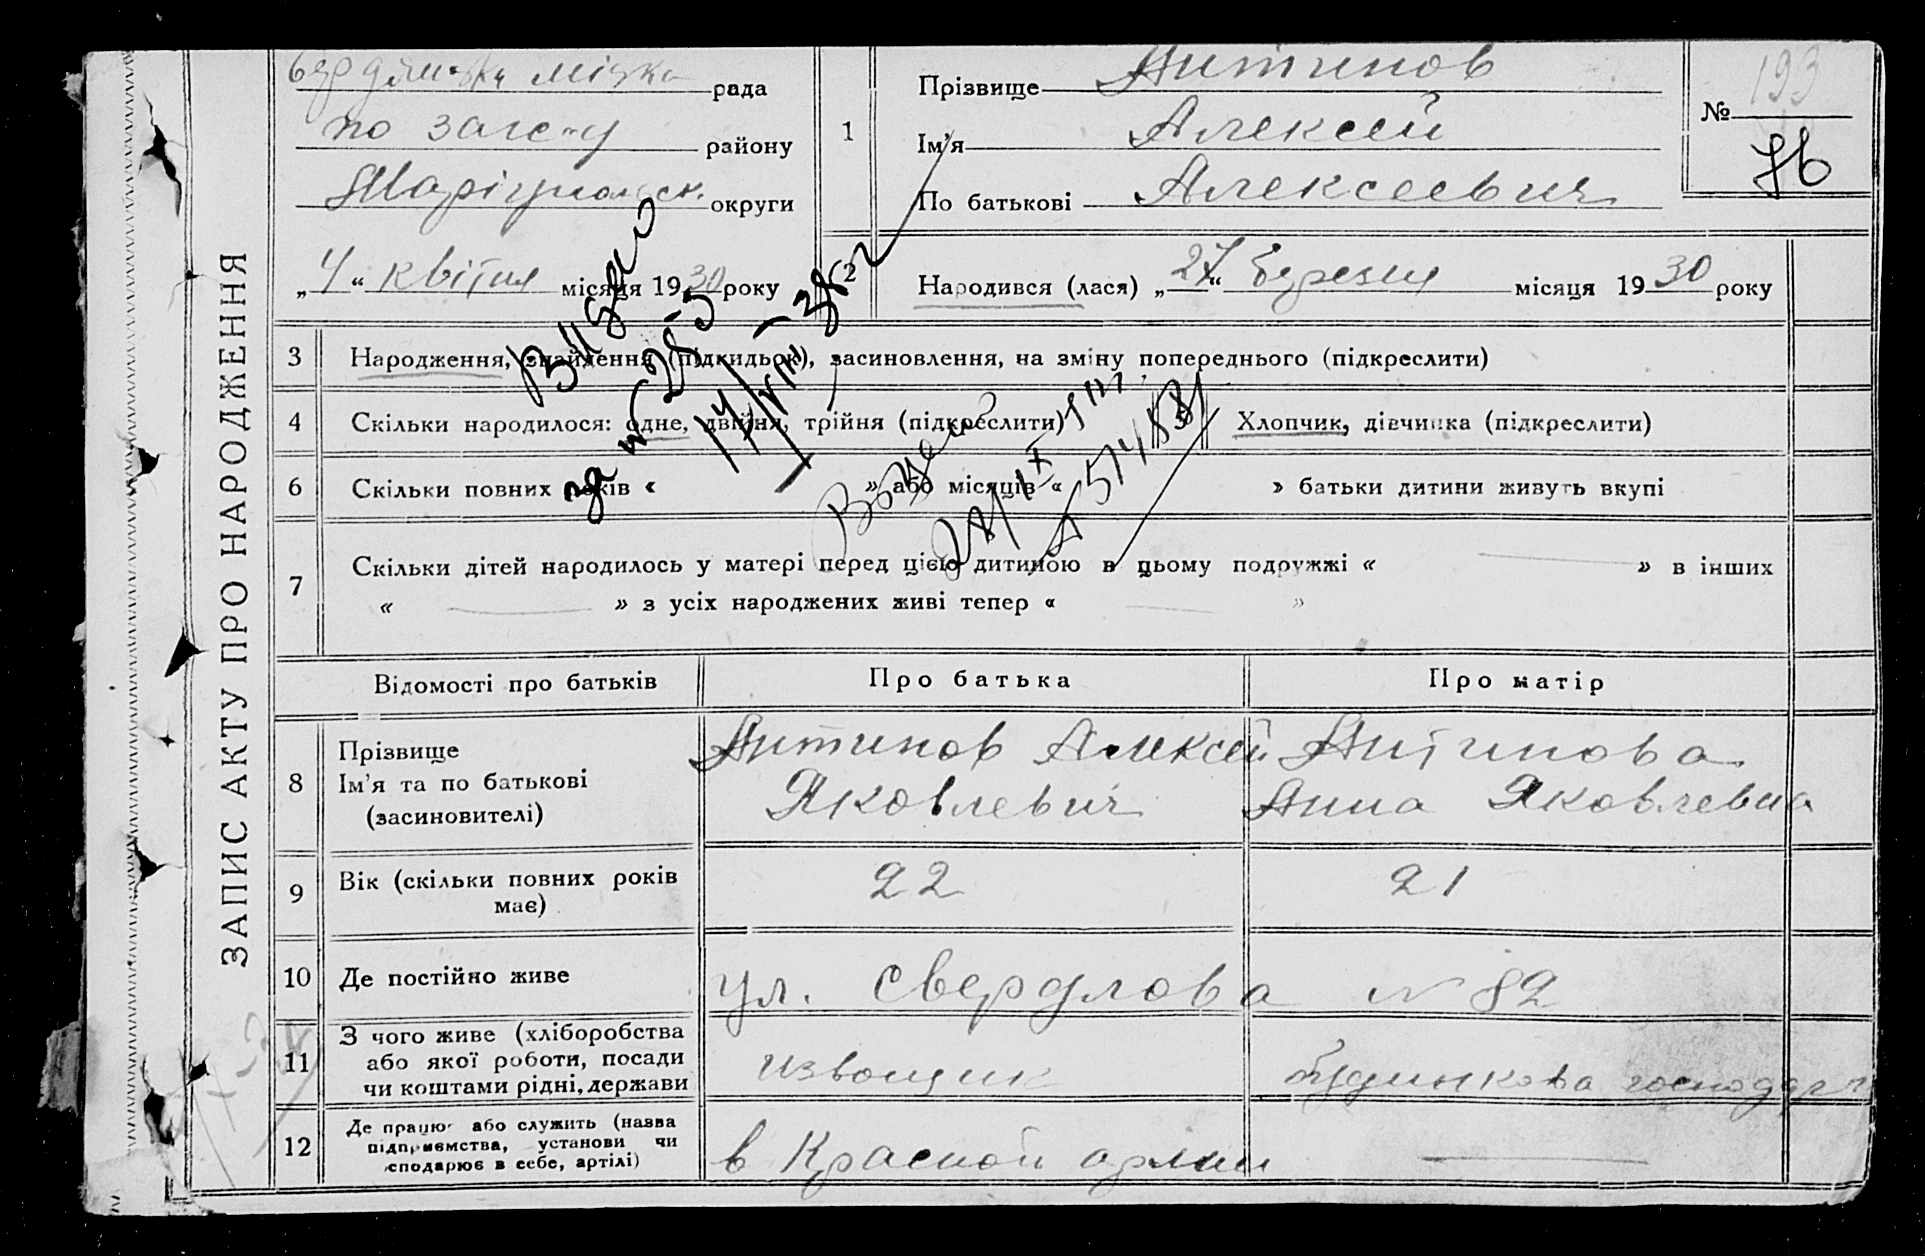 ЗАПИС АКТУ ПРО НАРОДЖЕННЯ
міська рада
по загсу району
Маріупольск. округи
„4“ квітня місяця 1930 року
1
Прізвище Антипов
Ім'я Алексей
По батькові Алексеевич
№ 193
76
2
Народився (лася) „27“ березня місяця 1930 року
3 Народження, знайдення (підкидьок), засиновлення, на зміну попереднього (підкреслити)
4 Скільки народилося: одне, двійня, трійня (підкреслити)
5 Хлопчик, дівчинка (підкреслити)
6 Скільки повних років « » або місяців « » батьки дитини живуть вкупі
7 Скільки дітей народилось у матері перед цією дитиною в цьому подружжі « — » в інших
« — » з усіх народжених живі тепер « — »
Видано
за № 28-5
14/VIII-38
28/IX
574
Відомості про батьків
Про батька
Про матір
8 Прізвище
Ім'я та по батькові
(засиновителі)
Антипов Алексей
Яковлевич
Антипова
Анна Яковлевна
9 Вік (скільки повних років
має)
22
21
10 Де постійно живе
ул. Свердлова № 82
11 З чого живе (хліборобства
або якої роботи, посади
чи коштами рідні, держави
извощик
будинкова господарк
12 Де працює або служить (назва
підприємства, установи чи
господарює в себе, артілі)
в Красной армии
—